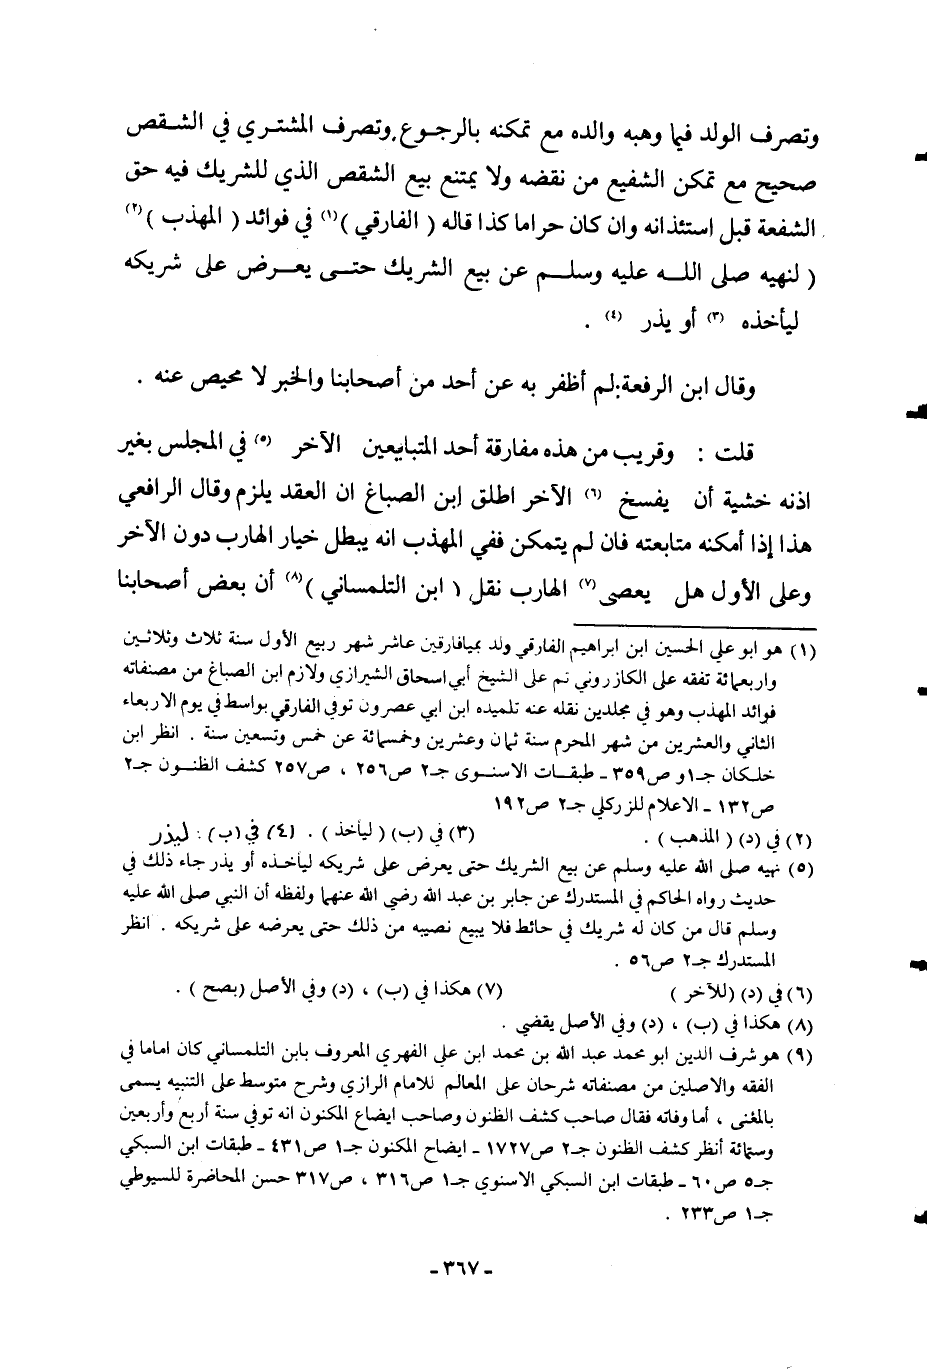 وتصرف الولد فيما وهبه والده مع تمكنه بالرجوع.وتصرف المشتري في الشقص
صحيح مع تمكن الشفيع من نقضه ولا يمتنع بيع الشقص الذي للشريك فيه حق
الشفعة قبل استئذانه وان كان حراما كذا قاله ( الفارقي )(١) في فوائد ( المهذب )(٢)
( لنهيه صلى الله عليه وسلم عن بيع الشريك حتى يعرض على شريكه
ليأخذه (٣) أو يذر (٤) .
وقال ابن الرفعة:لم أظفر به عن أحد من أصحابنا والخبر لا محيص عنه .
قلت : وقريب من هذه مفارقة أحد المتبايعين الآخر (٥) في المجلس بغير
اذنه خشية أن يفسخ (٦) الآخر اطلق إبن الصباغ ان العقد يلزم وقال الرافعي
هذا إذا أمكنه متابعته فان لم يتمكن ففي المهذب انه يبطل خيار الهارب دون الآخر
وعلى الأول هل يعصى(٧) الهارب نقل ( ابن التلمساني )(٨) أن بعض أصحابنا
(١) هو ابو علي الحسين ابن ابراهيم الفارقي ولد بميافارقين عاشر شهر ربيع الأول سنة ثلاث وثلاثين
واربعمائة تفقه على الكازروني ثم على الشيخ أبي اسحاق الشيرازي ولازم ابن الصباغ من مصنفاته
فوائد المهذب وهو في مجلدين نقله عنه تلميذه ابن ابي عصرون توفي الفارقي بواسط في يوم الاربعاء
الثاني والعشرين من شهر المحرم سنة ثمان وعشرين وخمسمائة عن خمس وتسعين سنة . انظر ابن
خلكان جـ١و ص٣٥٩ ـ طبقات الاسنوى جـ٢ ص٢٥٦ ، ص٢٥٧ كشف الظنون جـ٢
ص١٣٢ ـ الاعلام للزركلي جـ٢ ص١٩٢
(٢) في (د) ( المذهب ) . (٣) في (ب) ( ليأخذ ) . (٤) في (ب) : ليذر
(٥) نهيه صلى الله عليه وسلم عن بيع الشريك حتى يعرض على شريكه ليأخذه أو يذر جاء ذلك في
حديث رواه الحاكم في المستدرك عن جابر بن عبد الله رضي الله عنهما ولفظه أن النبي صلى الله عليه
وسلم قال من كان له شريك في حائط فلا يبيع نصيبه من ذلك حتى يعرضه على شريكه . انظر
المستدرك جـ٢ ص٥٦ .
(٦) في (د) (للآخر ) (٧) هكذا في (ب) ، (د) وفي الأصل (بصح ) .
(٨) هكذا في (ب) ، (د) وفي الأصل يقضي .
(٩) هو شرف الدين ابو محمد عبد الله بن محمد ابن علي الفهري المعروف بابن التلمساني كان اماما في
الفقه والاصلين من مصنفاته شرحان على المعالم للامام الرازي وشرح متوسط على التنبيه يسمى
بالمغنى ، أما وفاته فقال صاحب كشف الظنون وصاحب ايضاع المكنون انه توفي سنة أربع وأربعين
وستمائة أنظر كشف الظنون جـ٢ ص١٧٢٧ ـ ايضاح المكنون جـ١ ص٤٣١ ـ طبقات ابن السبكي
جـ٥ ص٦٠ ـ طبقات ابن السبكي الاسنوي جـ١ ص٣١٦ ، ص٣١٧ حسن المحاضرة للسيوطي
جـ١ ص٢٣٣ .
ـ ٣٦٧ ـ